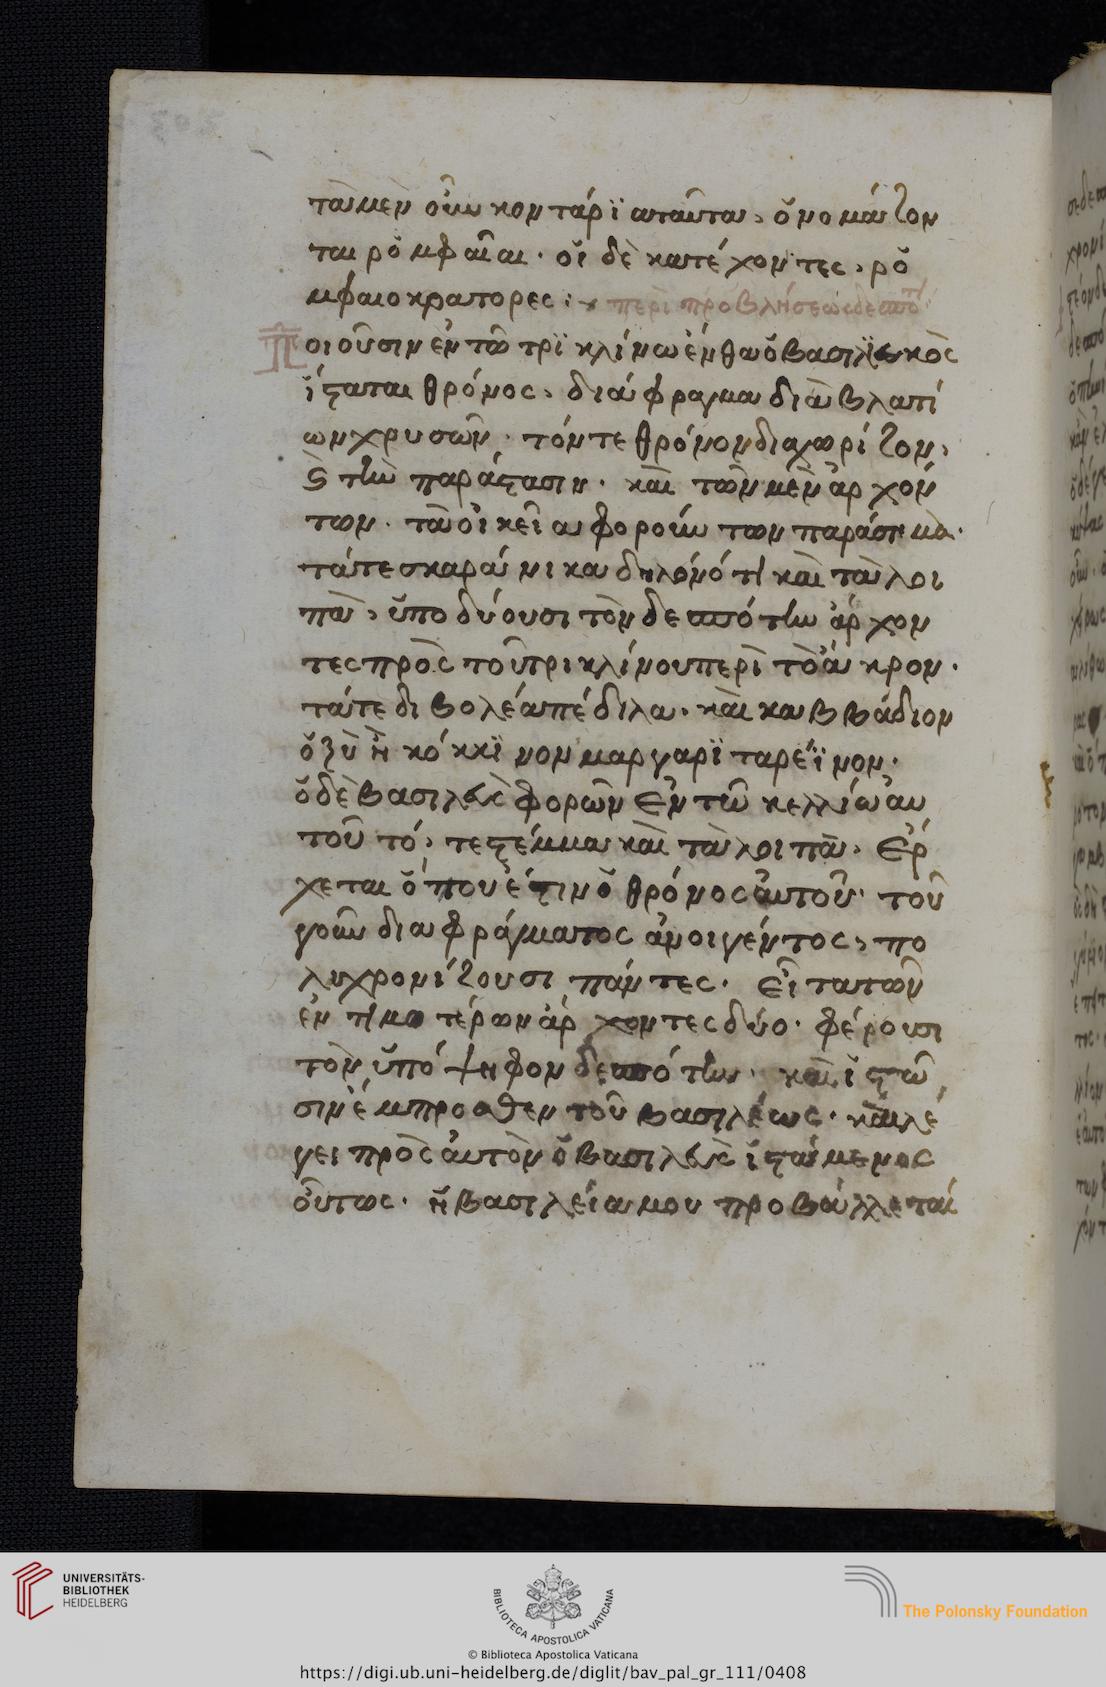 τὰ μὲν οὖν κοντάρϊα ταῦτα, ὀνομάζον
ται ῥομφαῖαι· οἱ δὲ κατέχοντες, ῥο
μφαιοκράτορες: περὶ προβλήσεως δεσπότ(ου):
Ποιοῦσιν ἐν τῶ τρϊκλίνω ἔνθα ὁ βασιλϊκὸς
ἵσταται θρόνος, διάφραγμα διὰ βλατί
ων χρυσῶν· τόν τε θρόνον διαχωρίζον,
καὶ τὴν παράστασιν· καὶ τῶν μὲν ἀρχόν
των· τὰ οἰκεῖα φορούντων παράσημα·
τά τε σκαράνικα δηλονότι καὶ τὰ λοι
πὰ, ὑποδύουσι τὸν δεσπότην ἄρχον
τες πρὸς τοῦ τρικλίνου περὶ τὸ ἄκρον·
τά τε διβολέα πέδιλα· καὶ καββάδιον
ὀξὺ ἢ κόκκϊνον μαργαρϊταρέϊνον·
ὁ δὲ βασιλεὺς φορῶν ἐν τῶ κελλίω αὐ
τοῦ τό, τε στέμμα καὶ τὰ λοιπὰ, ἔρ
χεται ὅπου ἐστὶν ὁ θρόνος αὐτοῦ· τοῦ
γοῦν διαφράγματος ἀνοιγέντος, πο
λυχρονίζουσι πάντες· εἶτα τῶν
ἐντιμοτέρων ἄρχοντες δύο· φέρουσι
τὸν ὑπόψηφον δεσπότην· καὶ ἱστῶ
σιν ἔμπροσθεν τοῦ βασιλέως· καὶ λέ
γει πρὸς αὐτὸν ὁ βασιλεὺς ἱστάμενος
οὕτως· ἡ βασιλεία μου προβάλλεταί
UNIVERSITÄTS-
BIBLIOTHEK
HEIDELBERG
BIBLIOTECA APOSTOLICA VATICANA
The Polonsky Foundation
© Biblioteca Apostolica Vaticana
https://digi.ub.uni-heidelberg.de/diglit/bav_pal_gr_111/0408